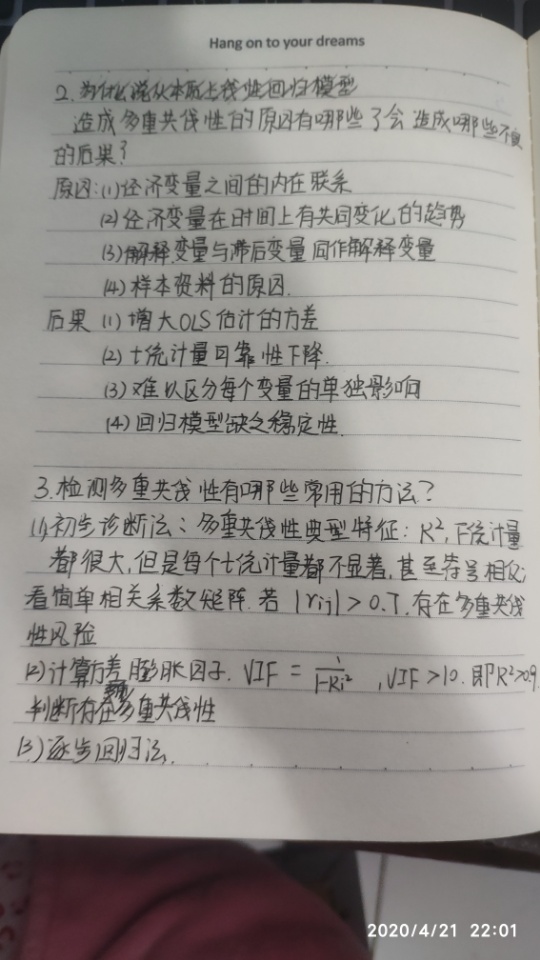 Hang on to your dreams
2.为什么说从本质上线性回归模型
造成多重共线性的原因有哪些了会造成哪些不良
的后果?
原因:(1)经济变量之间的内在联系
(2)经济变量在时间上有共同变化的趋势
(3)解释变量与滞后变量同作解释变量
(4)样本资料的原因.
后果(1)增大OLS估计的方差
(2)t统计量可靠性下降.
(3)难以区分每个变量的单独影响
(4)回归模型缺乏稳定性.
3.检测多重共线性有哪些常用的方法?
(1)初步诊断法:多重共线性典型特征:R²,F统计量
都很大,但是每个t统计量都不显著,甚至符号相反
看简单相关系数矩阵.若|rij|>0.7.存在多重共线
性风险
(2)计算方差膨胀因子. VIF = 1/1-Ri² ,VIF>10.即R²>0.9
判断存在多重共线性
(3)逐步回归法.
2020/4/21 22:01